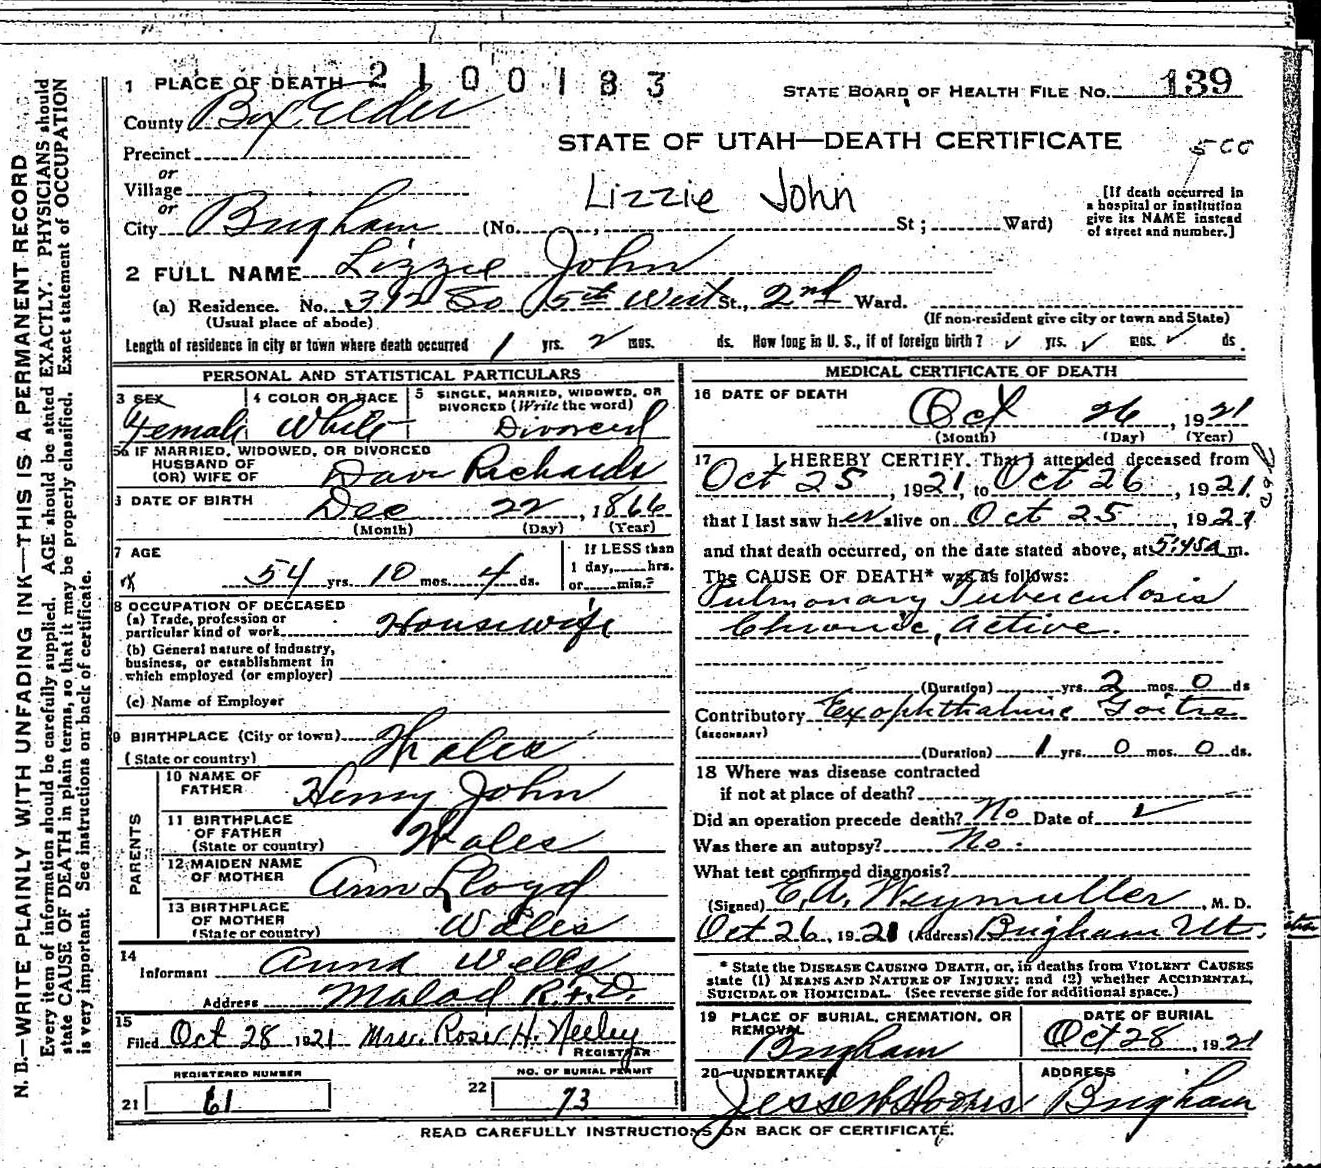 2100183
1 PLACE OF DEATH
STATE BOARD OF HEALTH FILE No. 139
County Box Elder
STATE OF UTAH—DEATH CERTIFICATE
500
Precinct
or
Village
Lizzie John
[If death occurred in a hospital or institution give its NAME instead of street and number.]
or
City Brigham (No. , St ; Ward)
2 FULL NAME Lizzie John
(a) Residence. No. 312 So 5th West St., 2nd Ward.
(Usual place of abode) (If non-resident give city or town and State)
Length of residence in city or town where death occurred 1 yrs. 2 mos. ds. How long in U. S., if of foreign birth? ✓ yrs. ✓ mos. ✓ ds.
PERSONAL AND STATISTICAL PARTICULARS
3 SEX 4 COLOR OR RACE 5 SINGLE, MARRIED, WIDOWED, OR DIVORCED (Write the word)
Female White Divorced
5a IF MARRIED, WIDOWED, OR DIVORCED
HUSBAND OF
(OR) WIFE OF Dave Richards
6 DATE OF BIRTH Dec 22, 1866
(Month) (Day) (Year)
7 AGE 54 yrs. 10 mos. 4 ds.
If LESS than
1 day, hrs.
or min.?
8 OCCUPATION OF DECEASED
(a) Trade, profession or
particular kind of work Housewife
(b) General nature of industry,
business, or establishment in
which employed (or employer)
(c) Name of Employer
9 BIRTHPLACE (City or town)
(State or country) Wales
PARENTS
10 NAME OF
FATHER Henry John
11 BIRTHPLACE
OF FATHER
(State or country) Wales
12 MAIDEN NAME
OF MOTHER Ann Lloyd
13 BIRTHPLACE
OF MOTHER
(State or country) Wales
14
Informant Anna Wells
Address Malad R.F.D.
15
Filed Oct 28 1921 Mrs. Rose H. Neeley
REGISTRAR
REGISTERED NUMBER NO. OF BURIAL PERMIT
21 61 22 73
MEDICAL CERTIFICATE OF DEATH
16 DATE OF DEATH
Oct 26, 1921
(Month) (Day) (Year)
17 I HEREBY CERTIFY, That I attended deceased from
Oct 25, 1921, to Oct 26, 1921
that I last saw her alive on Oct 25, 1921
and that death occurred, on the date stated above, at 5:45a m.
The CAUSE OF DEATH* was as follows:
Pulmonary Tuberculosis
Chronic, Active.
(Duration) yrs. 2 mos. 0 ds
Contributory Exophthalmic Goitre
(SECONDARY)
(Duration) 1 yrs. 0 mos. 0 ds.
18 Where was disease contracted
if not at place of death?
Did an operation precede death? No Date of ✓
Was there an autopsy? No.
What test confirmed diagnosis?
(Signed) E.A. Weymuller, M. D.
Oct 26, 1921 (Address) Brigham Ut.
* State the DISEASE CAUSING DEATH, or, in deaths from VIOLENT CAUSES
state (1) MEANS AND NATURE OF INJURY; and (2) whether ACCIDENTAL,
SUICIDAL OR HOMICIDAL. (See reverse side for additional space.)
19 PLACE OF BURIAL, CREMATION, OR REMOVAL DATE OF BURIAL
Brigham Oct 28, 1921
20 UNDERTAKER ADDRESS
Brigham
READ CAREFULLY INSTRUCTIONS ON BACK OF CERTIFICATE.
N. B.—WRITE PLAINLY WITH UNFADING INK—THIS IS A PERMANENT RECORD
Every item of information should be carefully supplied. AGE should be stated EXACTLY. PHYSICIANS should
state CAUSE OF DEATH in plain terms, so that it may be properly classified. Exact statement of OCCUPATION
is very important. See instructions on back of certificate.